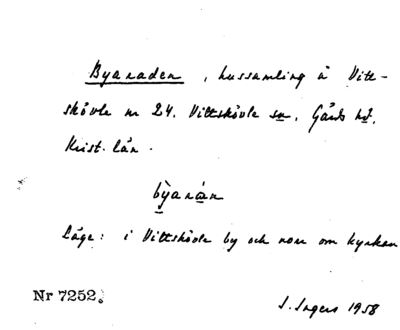 Byaraden, hussamling å Vitt-
skövle nr 24. Vittskövle sn, Gärds hd,
Krist. län.
b̤yaran
Läge: i Vittskövle by och norr om kyrkan
Nr 7252.
I. Ingers 1958